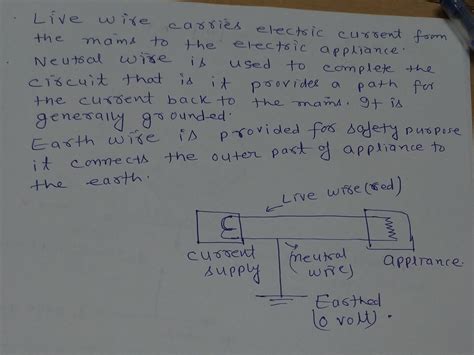 Live wire carries electric current from
the mains to the electric appliance.
Neutral wire is used to complete the
circuit that is it provides a path for
the current back to the mains. It is
generally grounded.
Earth wire is provided for safety purpose
it connects the outer part of appliance to
the earth.
Live wire (red)
current
supply
(neutral
wire)
appliance
Earthed
(0 volt).